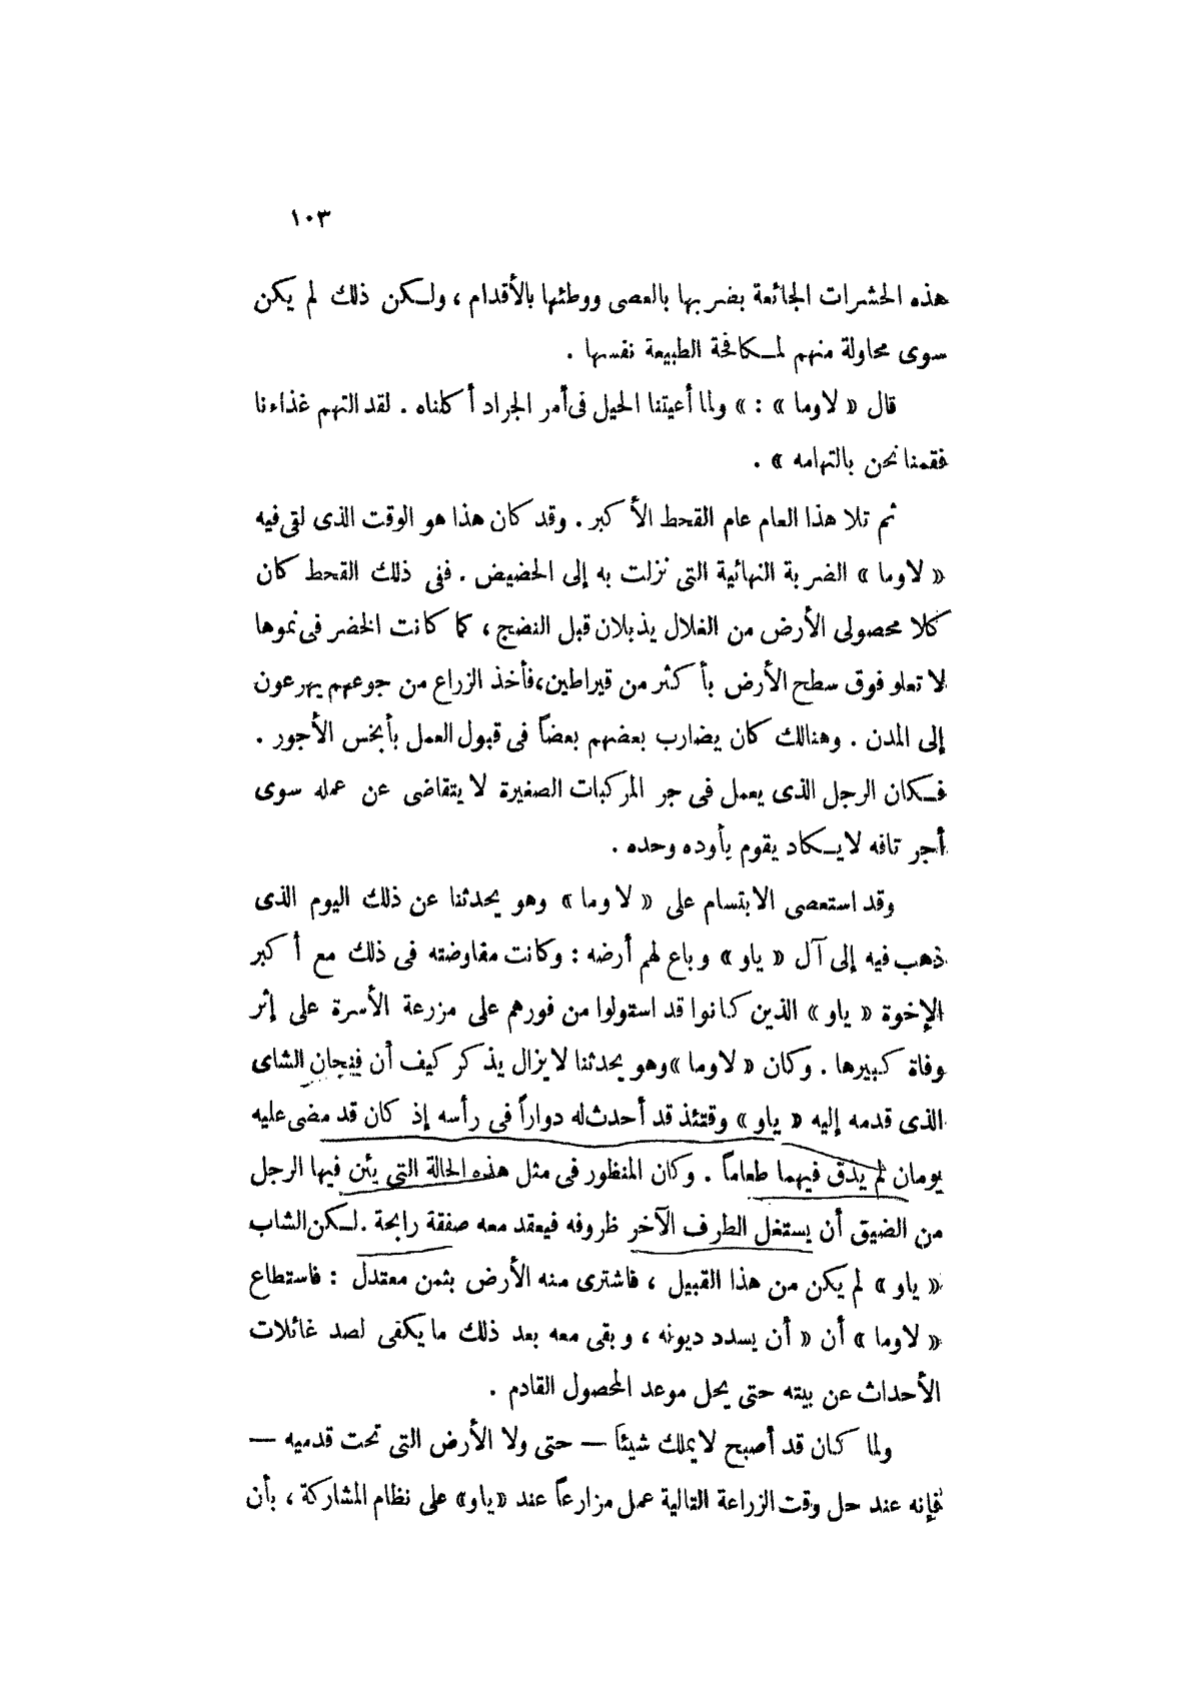 ١٠٣
هذه الحشرات الجائعة بضربها بالعصى ووطئها بالأقدام ، ولكن ذلك لم يكن
سوى محاولة منهم لمكافحة الطبيعة نفسها .
قال « لاوما » : » ولما أعيتنا الحيل فى أمر الجراد أكلناه . لقد التهم غذاءنا
فقمنا نحن بالتهامه » .
ثم تلا هذا العام عام القحط الأكبر . وقد كان هذا هو الوقت الذى لقى فيه
« لاوما » الضربة النهائية التى نزلت به إلى الحضيض . ففى ذلك القحط كان
كلا محصولى الأرض من الغلال يذبلان قبل النضج ، كما كانت الخضر فى نموها
لا تعلو فوق سطح الأرض بأكثر من قيراطين،فأخذ الزراع من جوعهم يهرعون
إلى المدن . وهنالك كان يضارب بعضهم بعضاً فى قبول العمل بأبخس الأجور .
فكان الرجل الذى يعمل فى جر المركبات الصغيرة لا يتقاضى عن عمله سوى
أجر تافه لايكاد يقوم بأوده وحده .
وقد استعصى الابتسام على « لاوما » وهو يحدثنا عن ذلك اليوم الذى
ذهب فيه إلى آل « ياو » وباع لهم أرضه : وكانت مفاوضته فى ذلك مع أكبر
الإخوة « ياو » الذين كانوا قد استولوا من فورهم على مزرعة الأسرة على إثر
وفاة كبيرها . وكان « لاوما »وهو يحدثنا لايزال يذكر كيف أن فنجان الشاى
الذى قدمه إليه « ياو » وقتئذ قد أحدث له دواراً فى رأسه إذ كان قد مضى عليه
يومان لم يذق فيهما طعاماً . وكان المنظور فى مثل هذه الحالة التى يئن فيها الرجل
من الضيق أن يستغل الطرف الآخر ظروفه فيعقد معه صفقة رابحة . لكن الشاب
« ياو » لم يكن من هذا القبيل ، فاشترى منه الأرض بثمن معتدل : فاستطاع
« لاوما » أن « أن يسدد ديونه ، وبقى معه بعد ذلك ما يكفى لصد غائلات
الأحداث عن بيته حتى يحل موعد المحصول القادم .
ولما كان قد أصبح لايملك شيئاً — حتى ولا الأرض التى تحت قدميه —
فإنه عند حل وقت الزراعة التالية عمل مزارعاً عند «ياو» على نظام المشاركة ، بأن